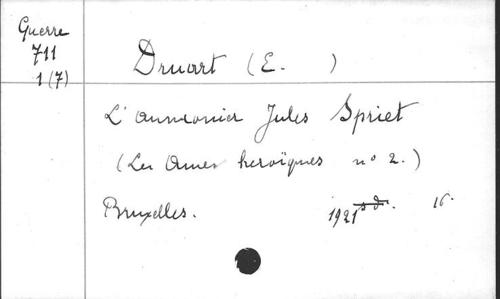 Guerre
711
1(7)
Druart (E. )
L'aumonier Jules Spriet
(Les Ames heroïques nº 2.)
Bruxelles. 1921 s d. 16.